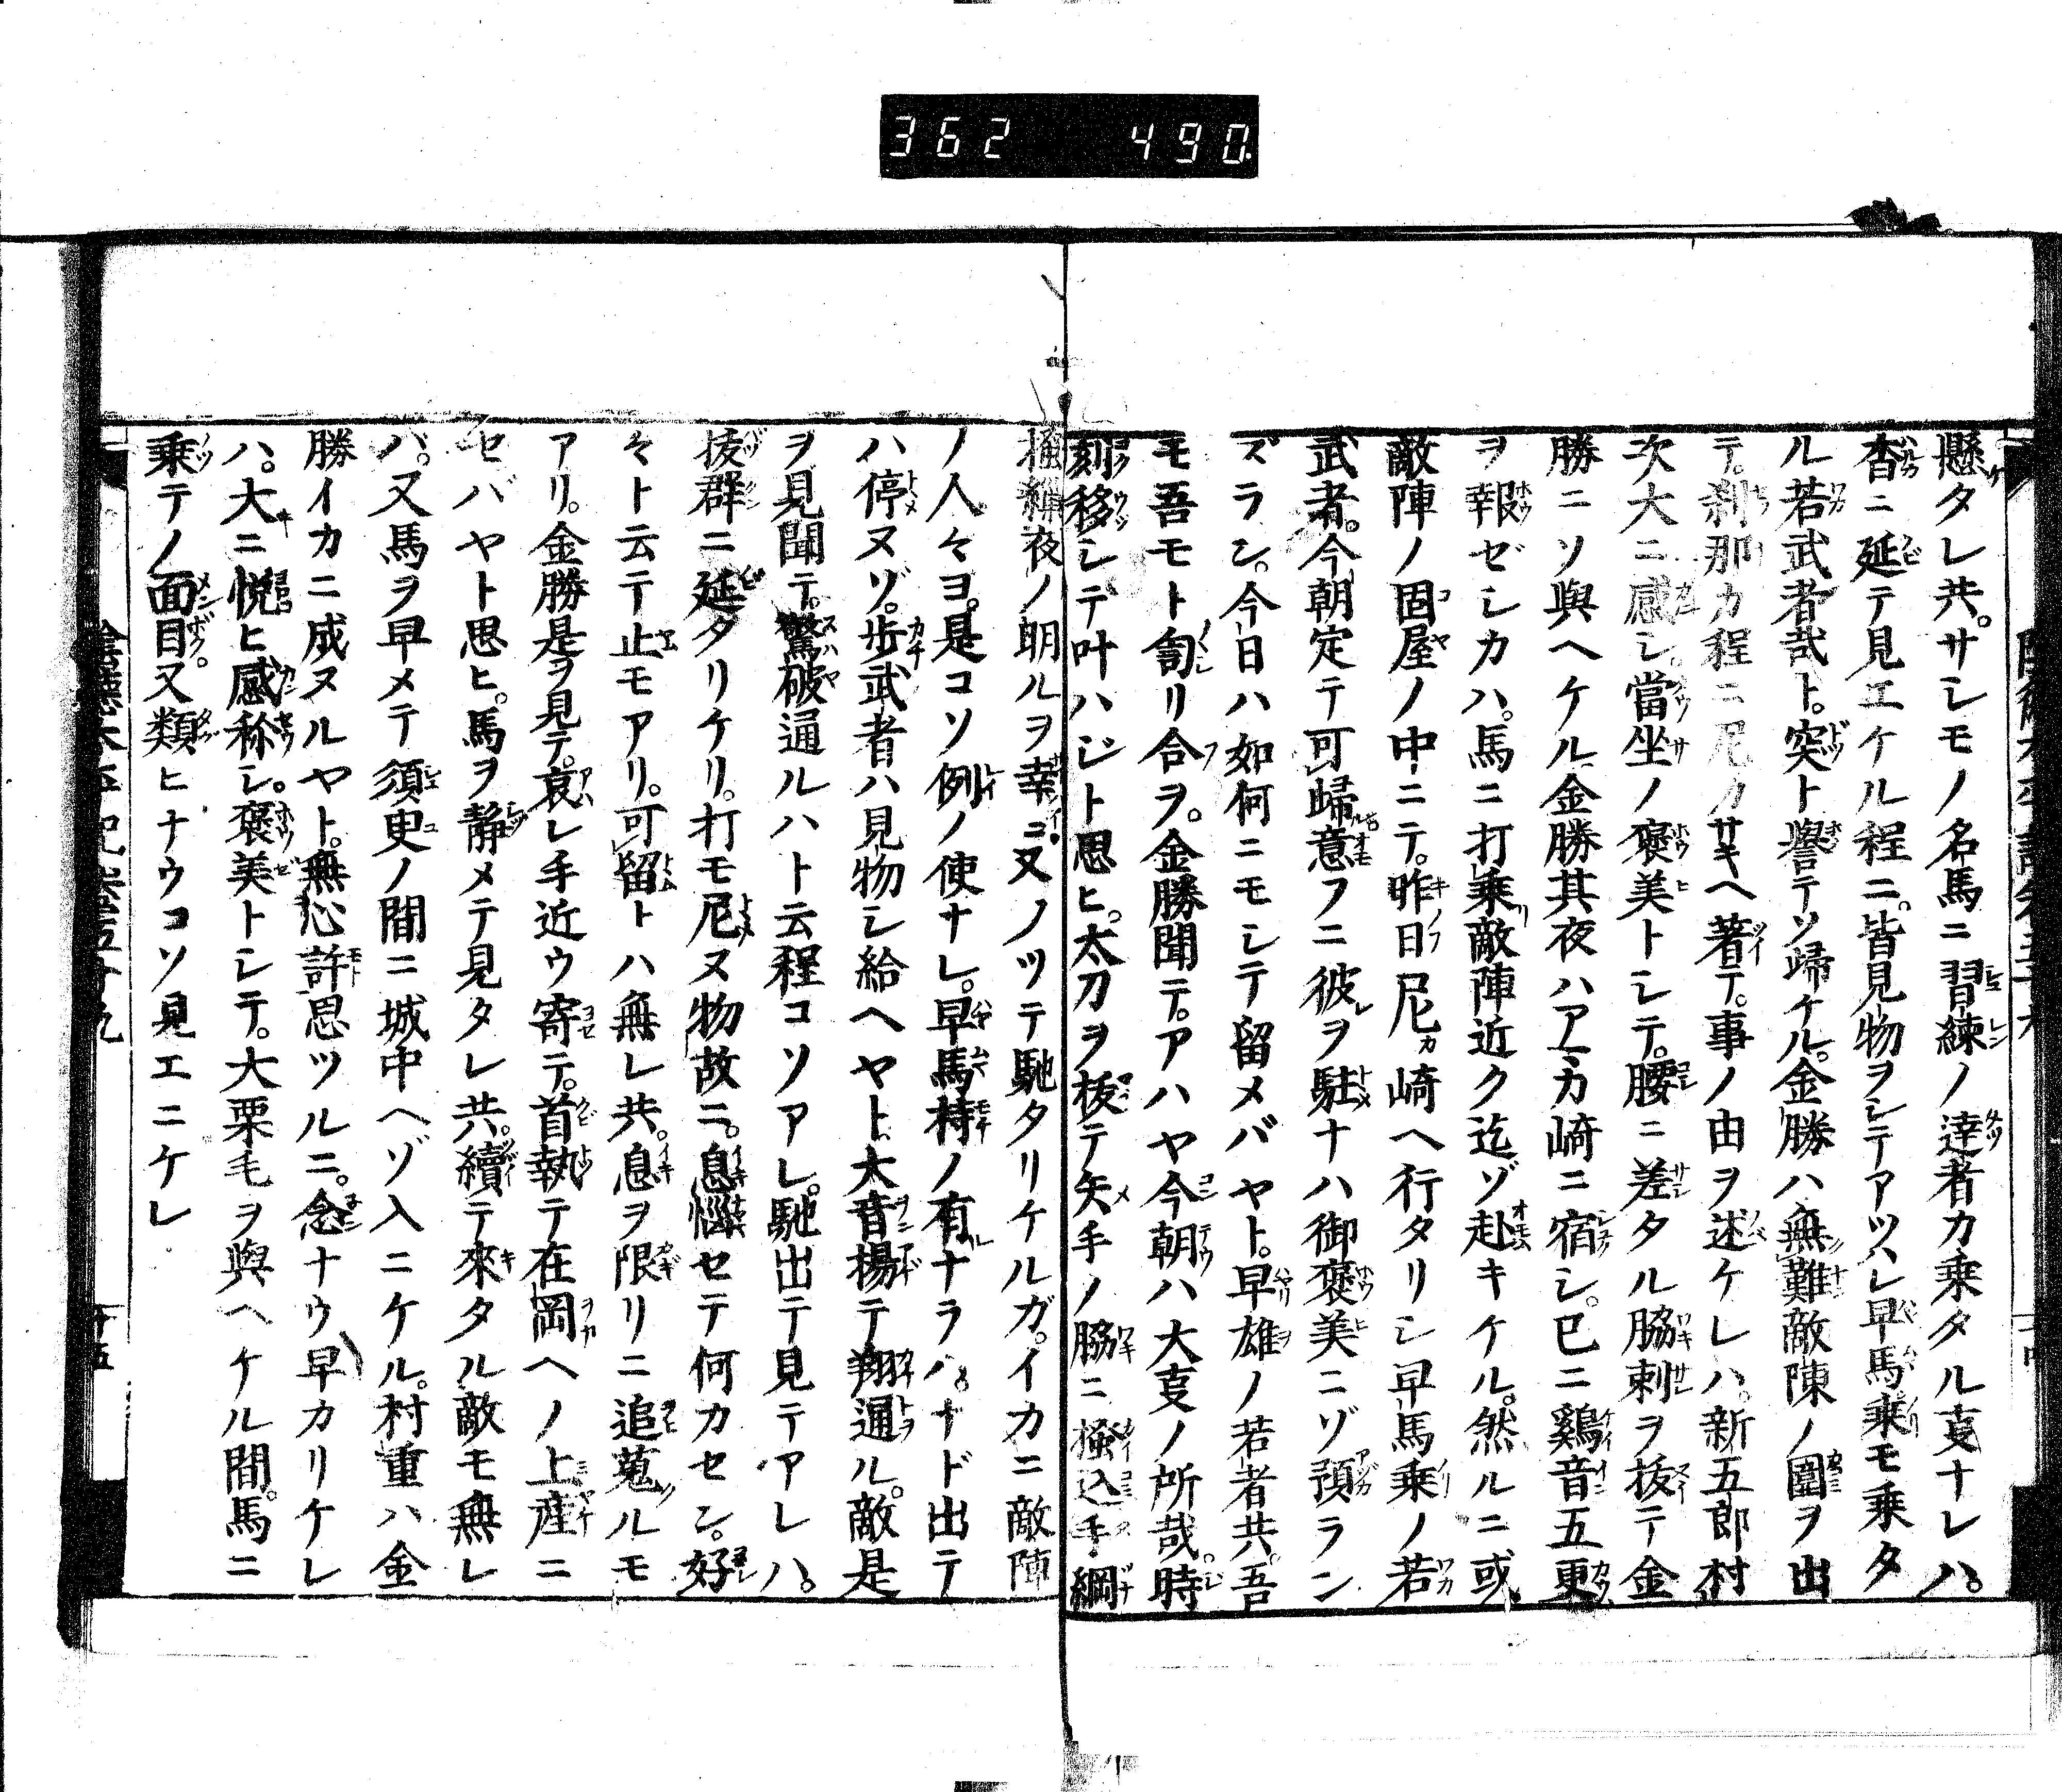 362 490.
懸タレ共。サシモノ名馬ニ習練ノ達者カ乗タル叓ナレハ。
杳ニ延テ見エケル程ニ。皆見物ヲシテアツハレ早馬乗モ乗タ
ル若武者哉ト。突ト譽テソ歸ケル。金勝ハ無難敵陳ノ圍ヲ出
テ。刹那カ程ニ尼カサキヘ著テ。事ノ由ヲ述ケレハ。新五郎村
次大ニ感シ。當坐ノ褒美トシテ。腰ニ差タル脇刺ヲ抜テ金
勝ニソ與ヘケル金勝其夜ハアマカ崎ニ宿シ。已ニ鷄音五更
ヲ報ゼシカハ。馬ニ打乗敵陣近ク迄ゾ赴キケル。然ルニ或
敵陣ノ固屋ノ中ニテ。昨日尼カ崎ヘ行タリシ早馬乗ノ若
武者。今朝定テ可歸意フニ彼ヲ駐ナハ御褒美ニゾ預ラン
ズラン。今日ハ如何ニモシテ留メバヤト。早雄ノ若者共。吾
モ吾モト訇リ合ヲ。金勝聞テ。アハヤ今朝ハ大叓ノ所哉。時
刻移シテ叶ハジト思ヒ。太刀ヲ抜テ矢手ノ脇ニ搔込手綱
搔繰夜ノ明ルヲ幸ニ又ノツテ馳タリケルガ。イカニ敵陣
ノ人々ヨ。是コソ例ノ使ナレ。早馬持ノ有ナラハ。ナド出テ
ハ停ヌゾ。歩武者ハ見物シ給ヘヤト大音揚テ翔通ル。敵是
ヲ見聞テ。驚破通ルハト云程コソアレ。馳出テ見テアレハ。
抜群ニ延タリケリ。打モ尼ヌ物故ニ。息惱セテ何カセン。好
々ト云テ止モアリ。可留トハ無レ共。息ヲ限リニ追蒐ルモ
アリ。金勝是ヲ見テ。哀レ手近ウ寄テ。首執テ在岡ヘノ上産ニ
セバヤト思ヒ。馬ヲ静メテ見タレ共。續テ來タル敵モ無レ
バ。又馬ヲ早メテ須臾ノ間ニ城中ヘゾ入ニケル。村重ハ金
勝イカニ成ヌルヤト。無心許思ツルニ。念ナウ早カリケレ
ハ。大ニ悦ヒ感称シ。褒美トシテ。大栗毛ヲ與ヘケル間。馬ニ
乗テノ面目又類ヒナウコソ見エニケレ